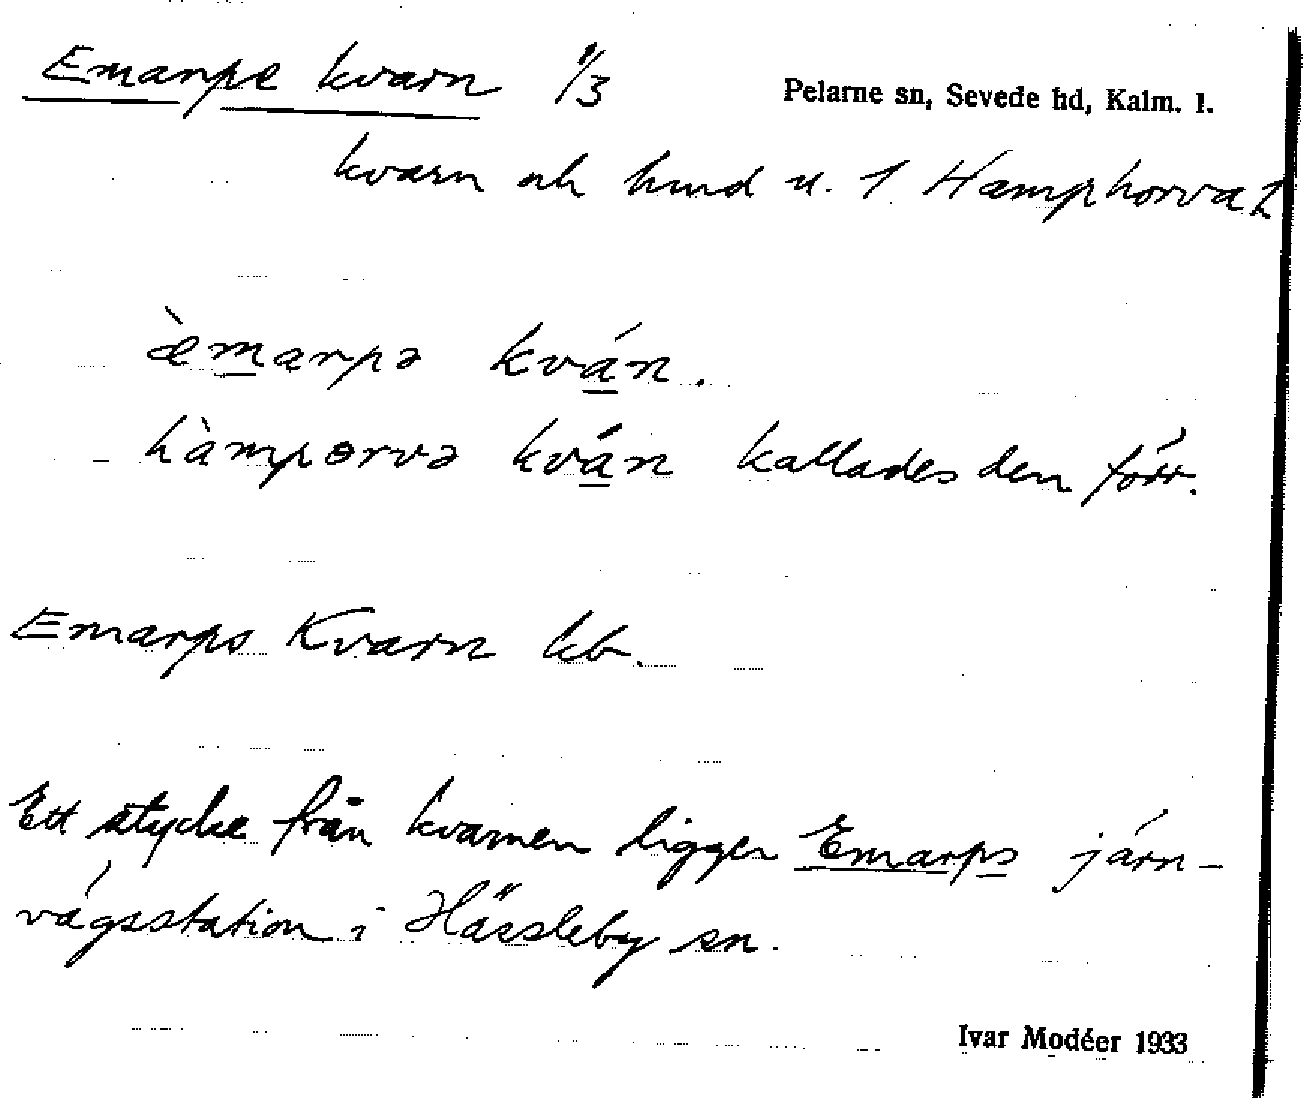 Emarpe kvarn 1/3
Pelarne sn, Sevede hd, Kalm. l.
kvarn och hmd u. 1 Hamphorva
æ̀marpə kván.
hàmpərvə kván kallades den förr.
Emarps Kvarn kb.
Ett stycke från kvarnen ligger Emarps järn-
vägsstation i Hässleby sn.
Ivar Modéer 1933